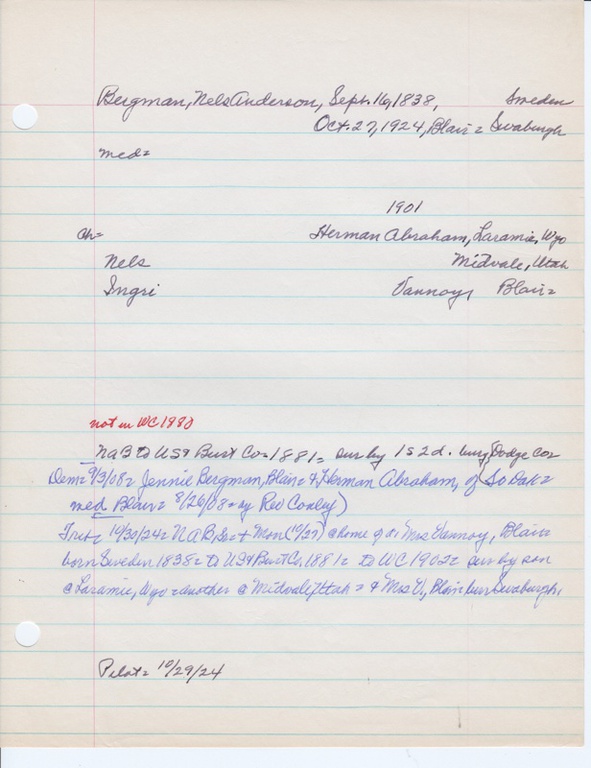 Bergman, Nels Anderson, Sept. 16, 1838, Sweden
Oct. 27, 1924, Blair = Swaburgh
med=
1901
ch= Herman Abraham, Laramie, Wyo
Nels Midvale, Utah
Ingri Vannoy, Blair=
not in WC 1980
NaB to US & Burt Co= 1881= sur by 1 s 2 d. bur, Dodge Co=
Dem= 9/3/08= Jennie Bergman, Blair= & Herman Abraham, of So Dak=
med Blair= 8/26/08= by Rev Conley)
Trib= 10/30/24= N A B, Sr= + Mon (10/27) @ home of dr Mrs Vannoy, Blair=
born Sweden 1838= to US & Burt Co, 1881= to WC 1902= sur by son
@ Laramie, Wyo = another @ Midvale, Utah = & Mrs V, Blair= bur Swaburgh,
Pilot= 10/29/24